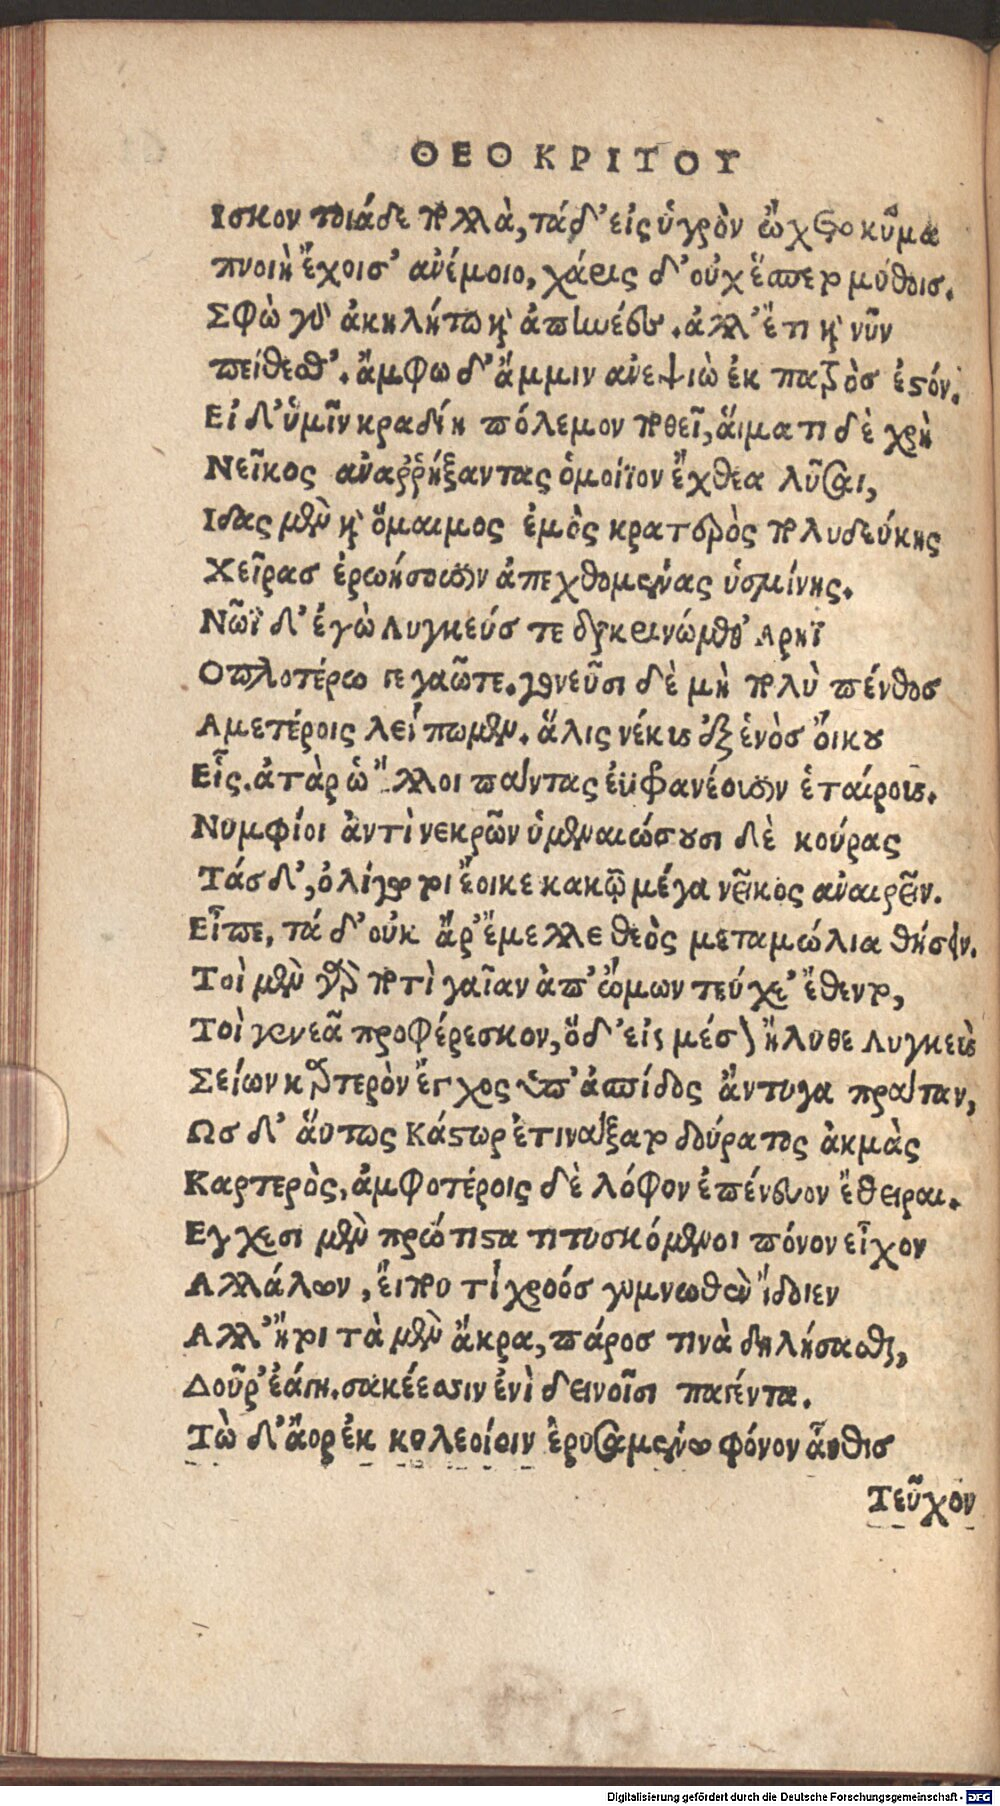 ΘΕΟΚΡΙΤΟΥ
Ισκον τοιάδε πολλὰ, τάδ' εἰς ὑγρὸν ᾤχετο κῦμα
πνοιὴ ἔχοισ' ἀνέμοιο, χάρις δ' οὐχ ἕσπερ μύθοις.
Σφὼ γὰρ ἀκηλήτω καὶ ἀπηνέες. ἀλλ' ἔτι καὶ νῦν
πείθεσθ'. ἄμφω δ' ἄμμιν ἀνεψιὼ ἐκ πατρὸσ ἐστόν.
Εἰ δ' ὑμῖν κραδίη πόλεμον ποθεῖ, ἅιματι δὲ χρὴ
Νεῖκος ἀναῤῥήξαντας ὁμοίϊον ἔχθεα λῦσαι,
Ιδας μὲν καὶ ὅμαιμος ἐμὸς κρατερὸς πολυδεύκης
Χεῖρασ ἐρωήσουσιν ἀπεχθομένας ὑσμίνης.
Νῶϊ δ' ἐγὼ Λυγκεύσ τε διακρινώμεθ' Αρηϊ
Οπλοτέρω γεγαῶτε. γονεῦσι δὲ μὴ πολὺ πένθοσ
Αμετέροις λείπωμεν. ἅλις νέκυς ἐξ ἑνὸσ ὄικου
Εἷς. ἀτὰρ ὡ λλοι πάντας ἐϋφανέουσιν ἑταίρους.
Νυμφίοι ἀντὶ νεκρῶν ὑμεναιώσουσι δὲ κούρας
Τάσδ', ὀλίγῳ τοι ἔοικε κακῷ μέγα νεῖκος ἀναιρεῖν.
Εἶπε, τά δ' οὐκ ἄρ' ἔμελλε θεὸς μεταμώλια θήσειν.
Τοὶ μὲν γὰρ ποτὶ γαῖαν ἀπ' ὤμων τεύχε' ἔθεντο,
Τοὶ γενεᾶ προφέρεσκον, ὅδ' εἰς μέσον ἤλυθε Λυγκεὺς
Σείων καρτερὸν ἔγχος ὑπ' ἀσπίδος ἄντυγα πράταν,
Ωσ δ' ἄυτως Κάστωρ ἐτινάξατο δούρατος ἀκμὰς
Καρτερὸς, ἀμφοτέροις δὲ λόφον ἐπένευον ἔθειραι.
Εγχεσι μὲν πρώτιστα τιτυσκόμενοι πόνον εἶχον
Αλλάλων, ἔιπου τί χροόσ γυμνωθὲν ἴδοιεν
Αλλ' ἤτοι τὰ μὲν ἄκρα, πάροσ τινὰ δηλήσασθαι,
Δοῦρ' ἐάγη. σακέεσσιν ἐνὶ δεινοῖσι παγέντα.
Τὼ δ' ἄορ ἐκ κολεοίοιν ἐρυσαμένω φόνον αὖθισ
Τεῦχον
Digitalisierung gefördert durch die Deutsche Forschungsgemeinschaft - DFG